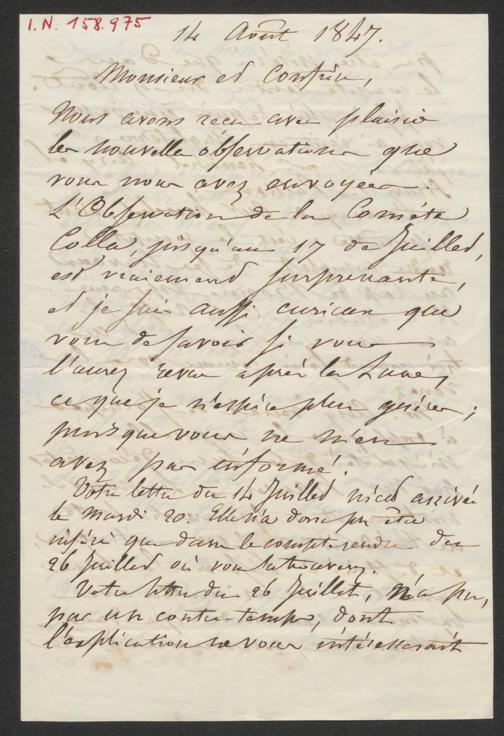 I.N. 158.975
14 Août 1847.
Monsieur et confrère,
Nous avons reçu avec plaisir
les nouvelles observations que
vous nous avez envoyées.
L'Observation de la Comète
Colla, jusqu'au 17 de Juillet,
est vraiement surprenante,
et je suis aussi curieux que
vous de savoir si vous
l'aurez revue après la Lune,
ce que je n'espère plus guères;
puisque vous ne m'en
avez pas informé.
Votre lettre du 14 Juillet m'est arrivée
le mardi 20. Elle n'a donc pu être
insérée que dans le compte rendu du
26 Juillet où vous la trouverez.
Votre lettre du 26 Juillet, n'a pu,
par un contre-temps, dont
l'explication ne vous intéresserait